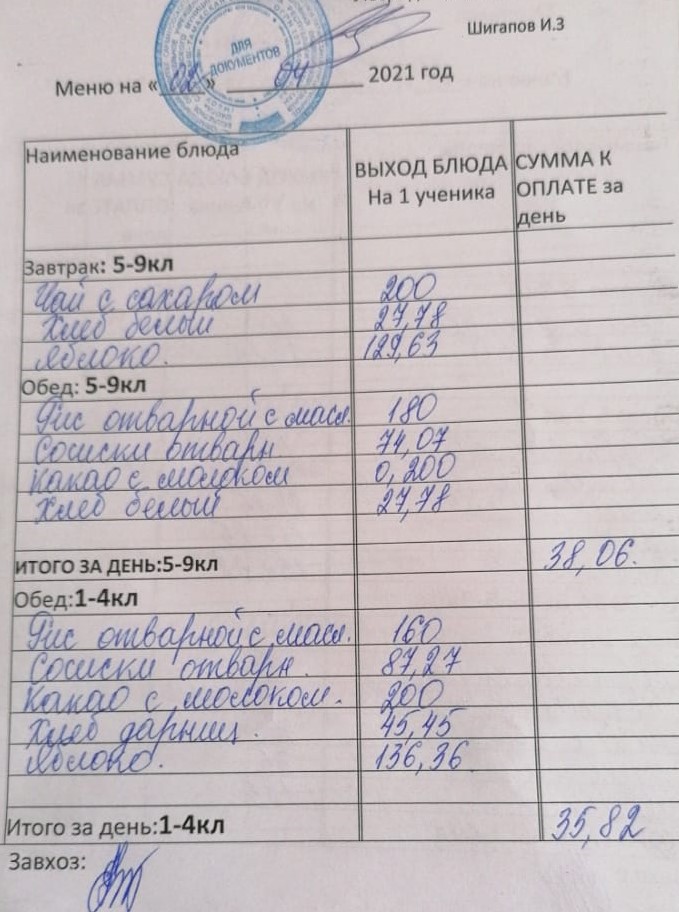 Шигапов И.З
ДЛЯ ДОКУМЕНТОВ
Меню на «02» 04 2021 год
Наименование блюда
ВЫХОД БЛЮДА На 1 ученика
СУММА К ОПЛАТЕ за день
Завтрак: 5-9кл
Чай с сахаром 200
Хлеб белый 27,78
Яблоко. 129,63
Обед: 5-9кл
Рис отварной с масл. 180
Сосиски отварн. 74,07
Какао с молоком 0,200
Хлеб белый 27,78
ИТОГО ЗА ДЕНЬ:5-9кл 38,06.
Обед:1-4кл
Рис отварной с масл. 160
Сосиски отварн. 87,27
Какао с молоком. 200
Хлеб дарниц. 45,45
Яблоко. 136,36
Итого за день:1-4кл 35,82
Завхоз: